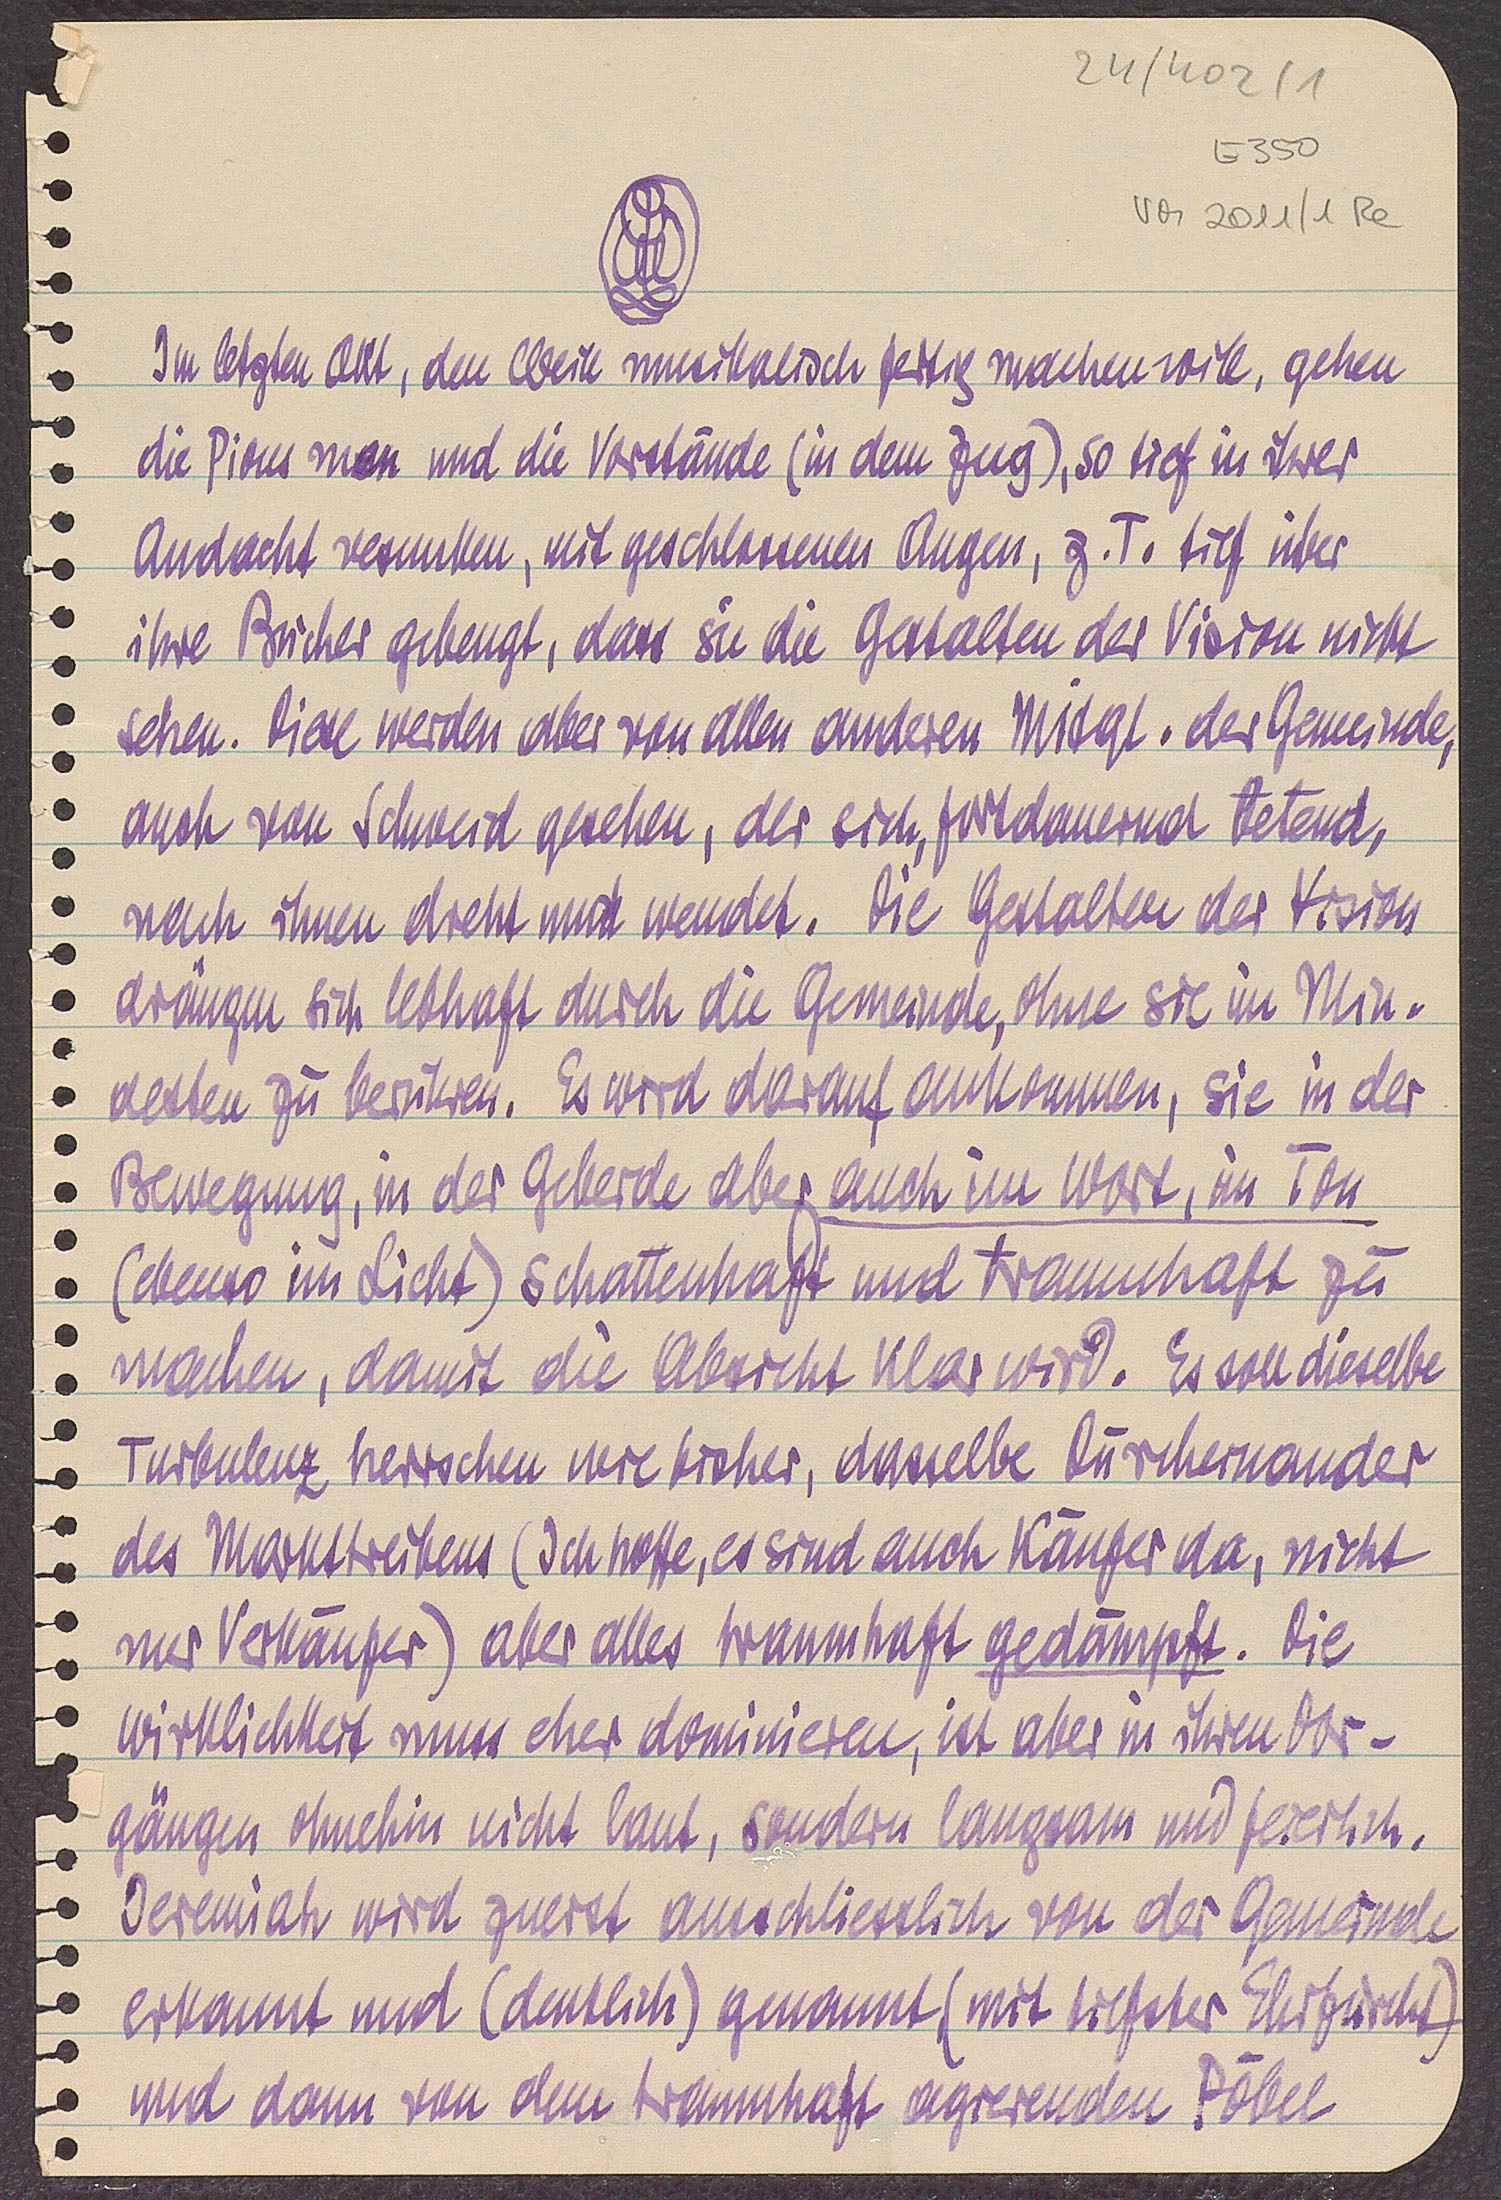 24/402/1
E350
Vor 2011/1 Re
Im letzten Akt, den Weill musikalisch fertig machen will, gehen
die Pious men und die Vorstände (in dem Zug), so tief in ihrer
Andacht versunken, mit geschlossenen Augen, z.T. tief über
ihre Bücher gebeugt, dass sie die Gestalten der Vision nicht
sehen. Diese werden aber von allen anderen Mitgl. der Gemeinde,
auch von gesehen, der sich, fortdauernd betend,
nach ihnen dreht und wendet. Die Gestalten der Vision
drängen sich lebhaft durch die Gemeinde, ohne sie im Min-
desten zu berühren. Es wird darauf ankommen, sie in der
Bewegung, in der Geberde aber auch im Wort, im Ton
(ebenso im Licht) schattenhaft und traumhaft zu
machen, damit die Absicht klar wird. Es soll dieselbe
Turbulenz herrschen wie bisher, dasselbe Durcheinander
des Markttreibens (Ich hoffe, es sind auch Käufer da, nicht
nur Verkäufer) aber alles traumhaft gedämpft. Die
Wirklichkeit muss eher dominieren, ist aber in ihren Vor-
gängen ohnehin nicht laut, sondern langsam und feierlich.
Jeremiah wird zuerst ausschliesslich von der Gemeinde
erkannt und (deutlich) genannt (mit tiefster Ehrfurcht)
und dann von dem traumhaft agierenden Pöbel